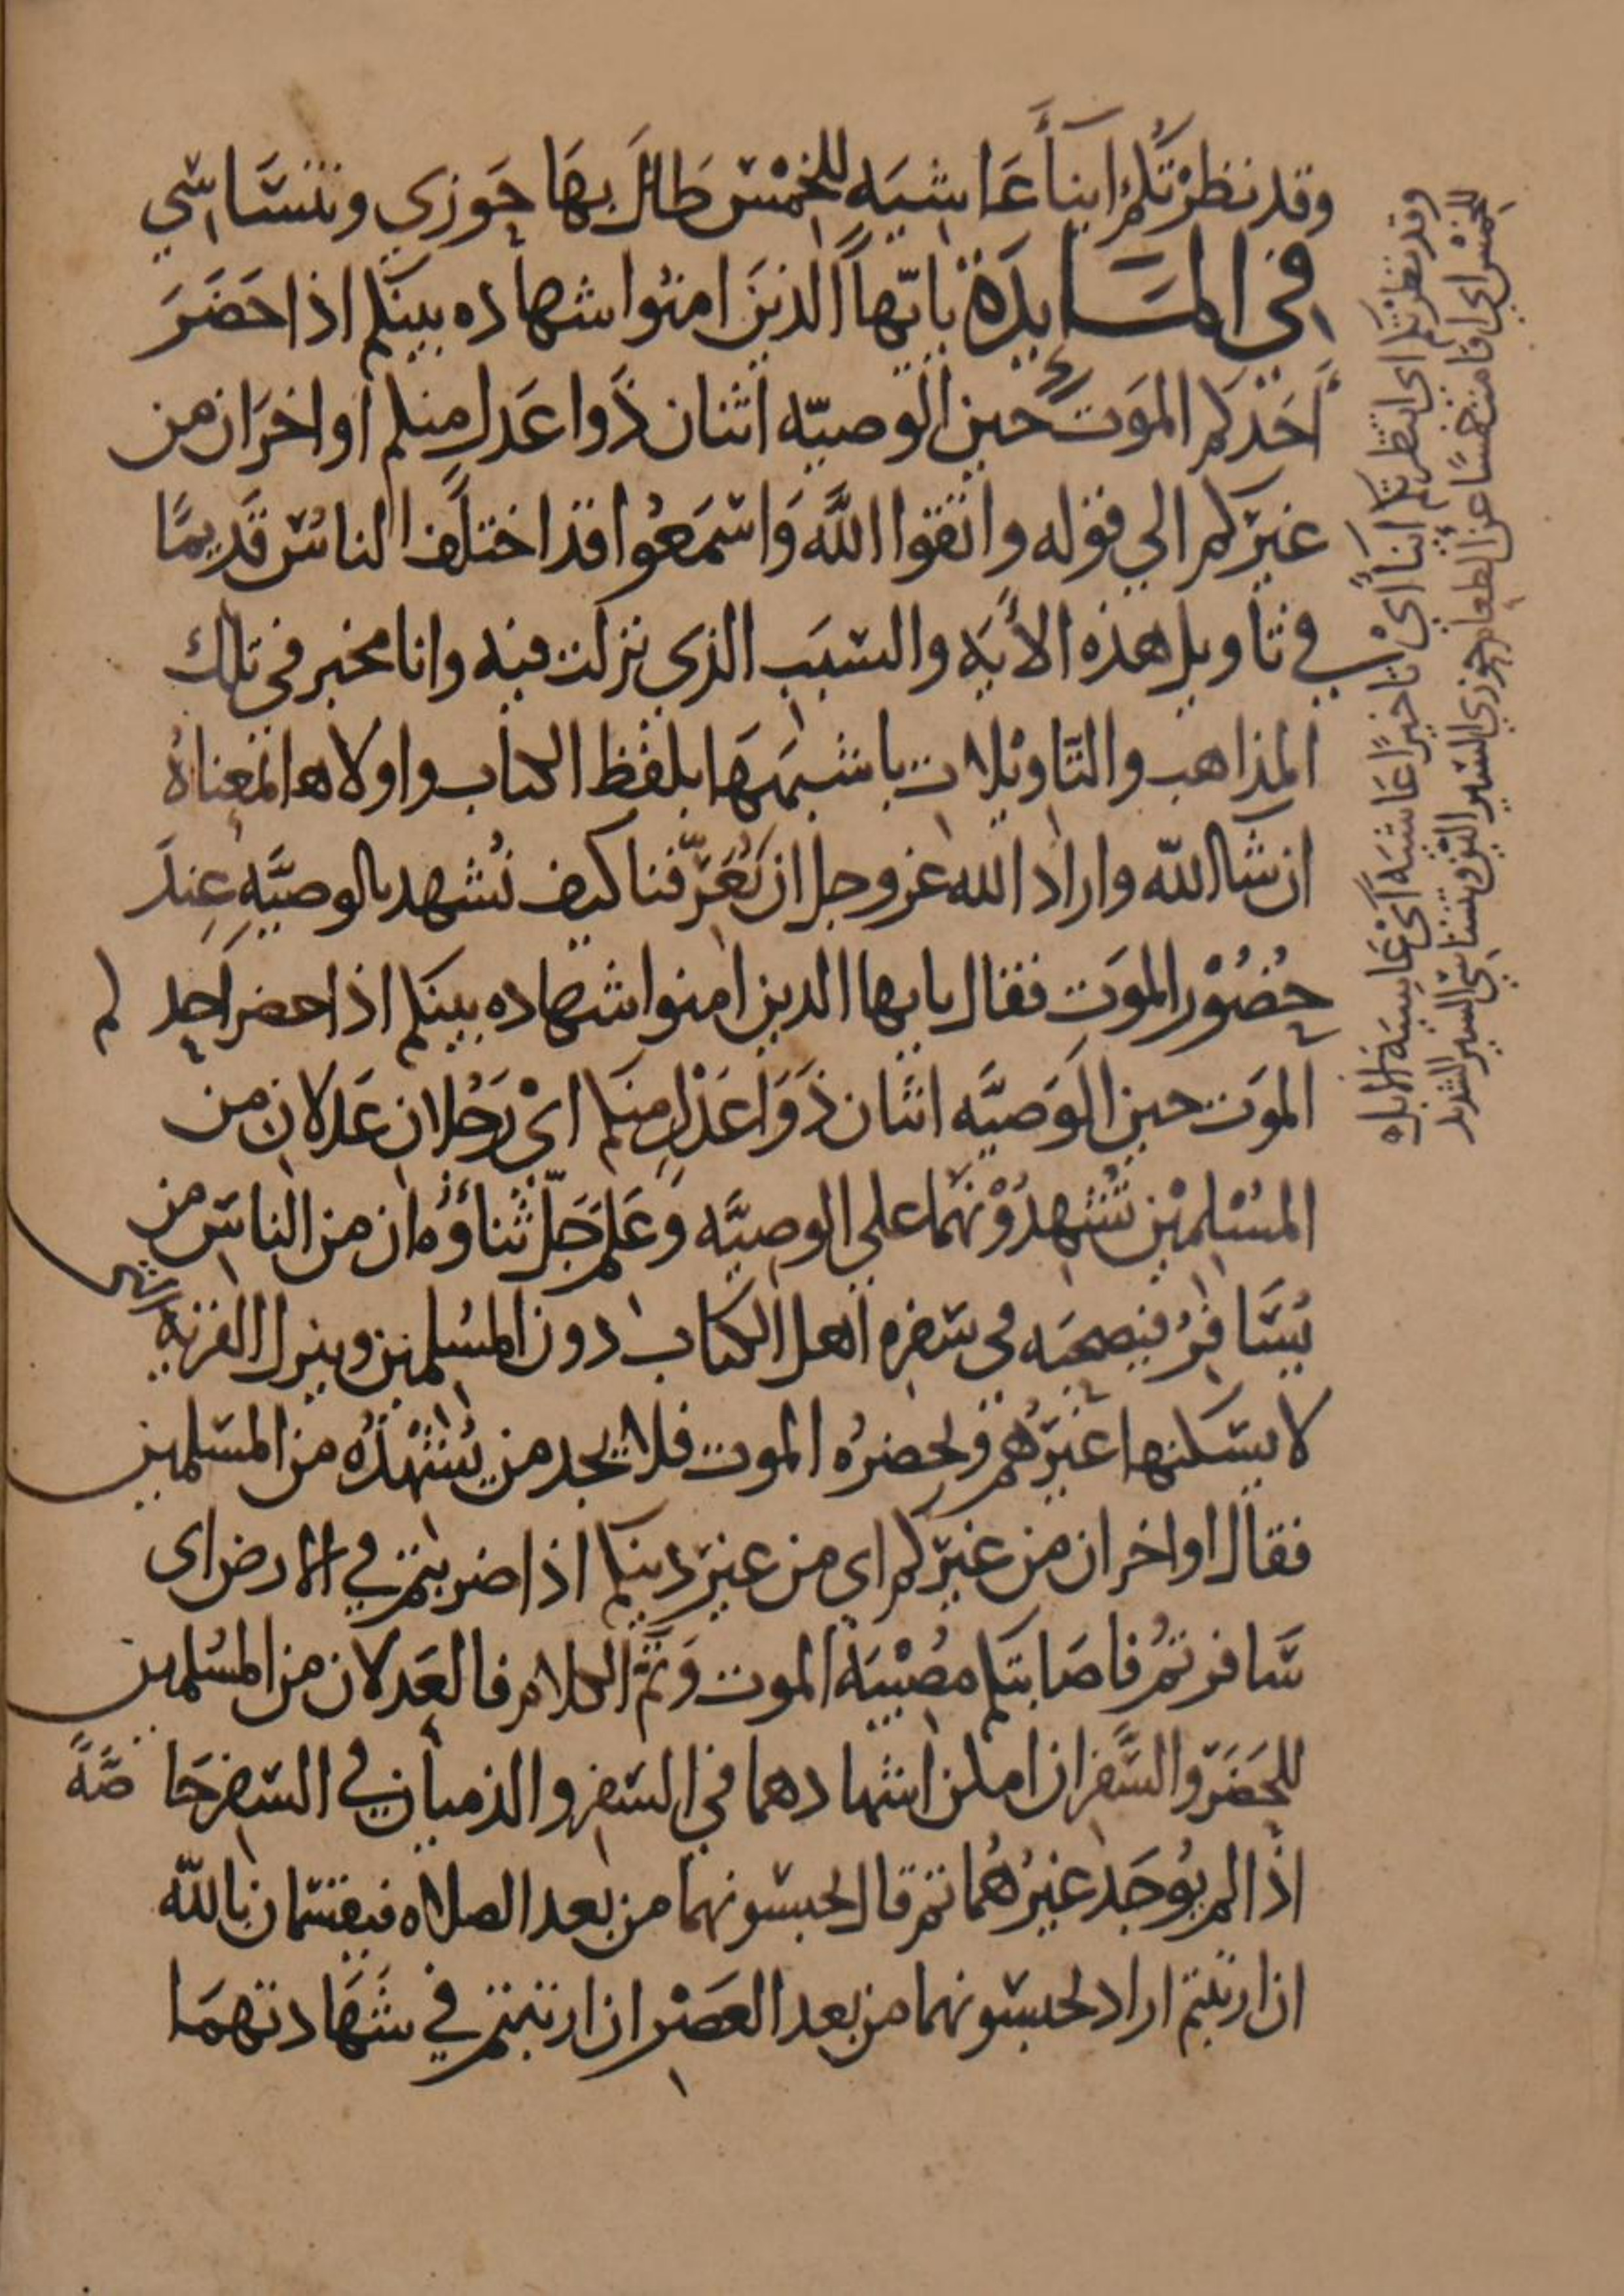 وقد نظرتكم ايناءً عاشية للخمس طال بها حوزي وتنساسي
في المسايدة ياتها الذين امنوا شهاده بينكم اذا حضر
احدكم الموت حين الوصيّه اثنان ذوا عدل منكم او اخران من
غيركم الي قوله واتقوا الله واسمعوا قد اختلف الناس قديمًا
في تاويل هذه الأيه والسبب الذي نزلت فيه وانا مخبر في تلك
المذاهب والتاويلات باشبهها بلفظ الكتاب واولاها بمعناه
ان شا الله واراد الله عز وجل ان يُعَرّفنا كيف نُشهد بالوصيّه عند
حُضُور الموت فقال يايها الدين امنوا شهاده بينكم اذا حضر احدكم
الموت حين الوصيّه اثنان ذوا عدل منكم اي رجلان عدلان من
المسلمين تشهدونهما على الوصيّه وعلم جلّ ثناؤه ان من الناس من
يسافر فيصحبه في سفره اهل الكتاب دون المسلمين وينزل القرية التي
لا يسكنها غيرهم ويحضره الموت فلا يجد من يُشهده من المسلمين
فقال او اخران من غيركم اي من غير دينكم اذا ضربتم في الارض اي
سافرتم فاصابتكم مصيبة الموت وتمّ الكلام فالعدلان من المسلمين
للحضر والسفر ان امكن اشهادهما في السفر والذميان في السفر خاصّةً
اذا لم يوجد غيرهما ثم قال تحبسونهما من بعد الصلاه فيقسمان بالله
ان ارتبتم اراد تحبسونهما من بعد العصر ان ارتبتم في شهادتهما
وقد نظرتكم اي انتظرتكم ايناءً اي تاخيرًا عاشية اي عاشية الابل
للخمس اي اقامت خمسًا عن الطعام حوزي السير اللين وتنساسي السير الشديد